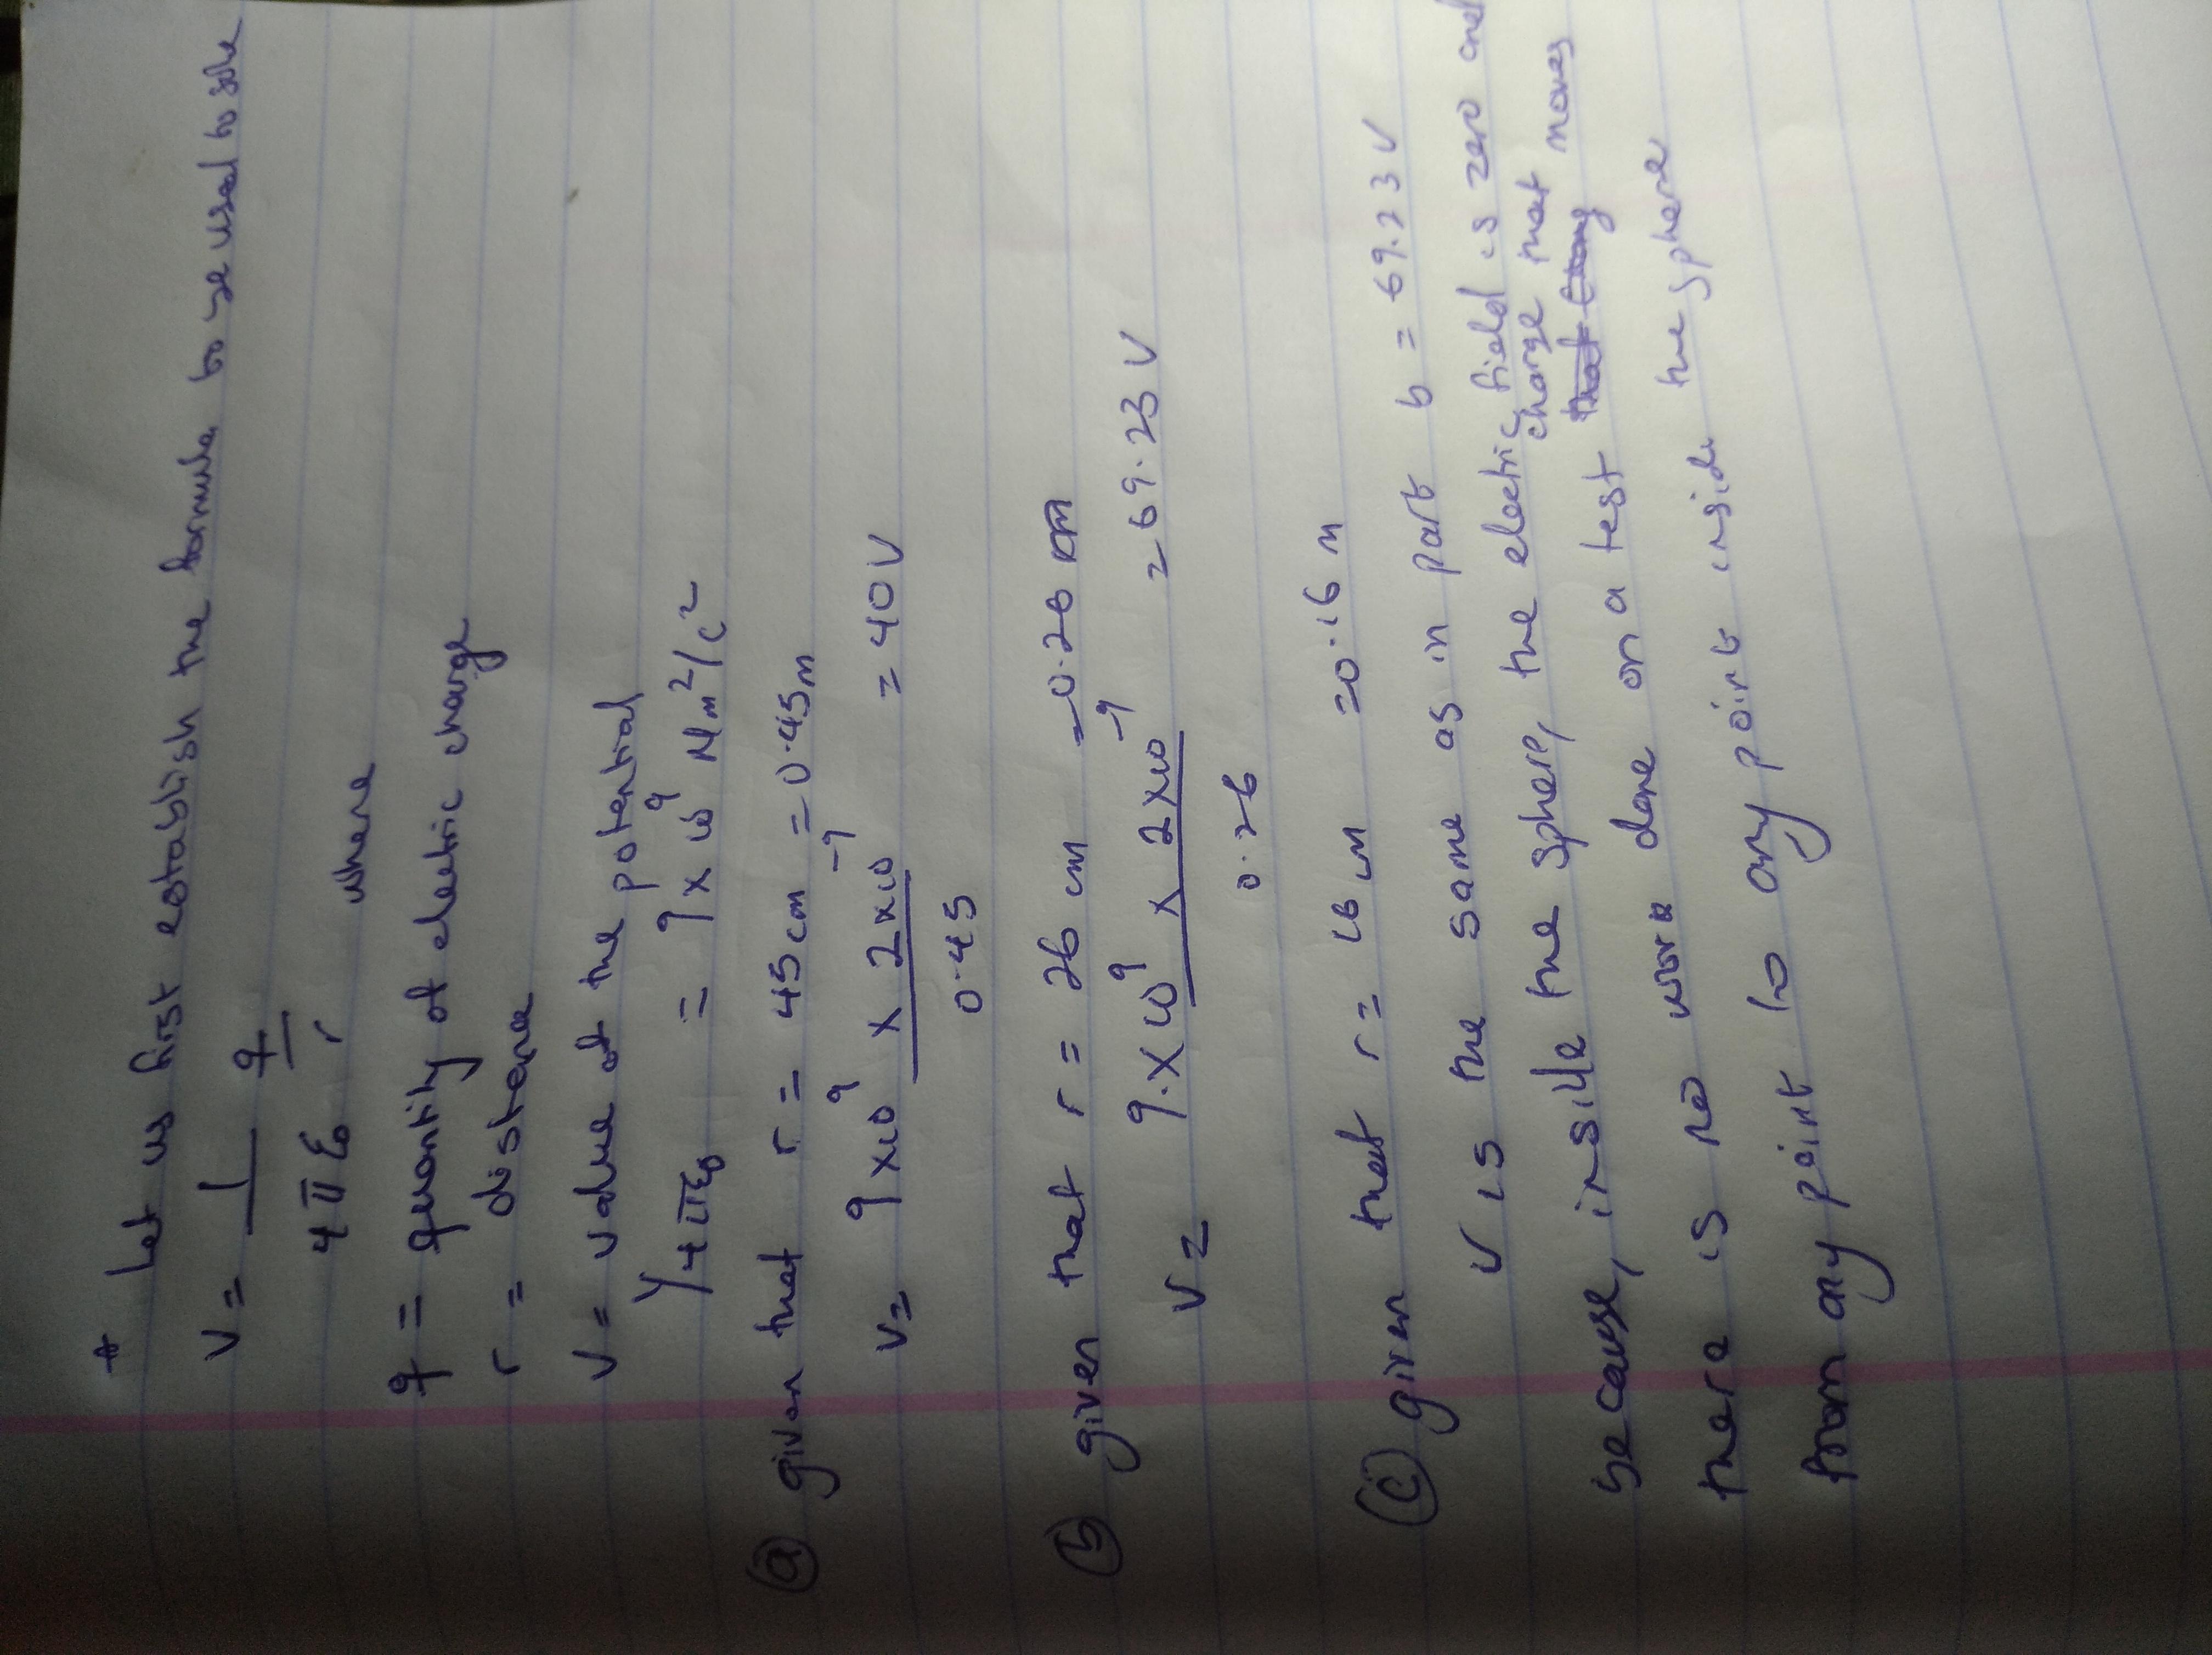 * Let us first establish the formula to be used to solve
V = 1/4πε₀ q/r, where
q = quantity of electric charge
r = distance
V = value of the potential
1/4πε₀ = 9 x 10⁹ Nm²/C²
(a) given that r = 45cm = 0.45m
V = 9x10⁹ x 2x10⁻⁹ / 0.45 = 40V
(b) given that r = 26 cm = 0.26 m
V = 9.x10⁹ x 2x10⁻⁹ / 0.26 = 69.23 V
(c) given that r = 16 cm = 0.16 m
V is the same as in part b = 69.23 V
because, inside the sphere, the electric field is zero and
there is no work done on a test charge that moves
from any point to any point inside the sphere